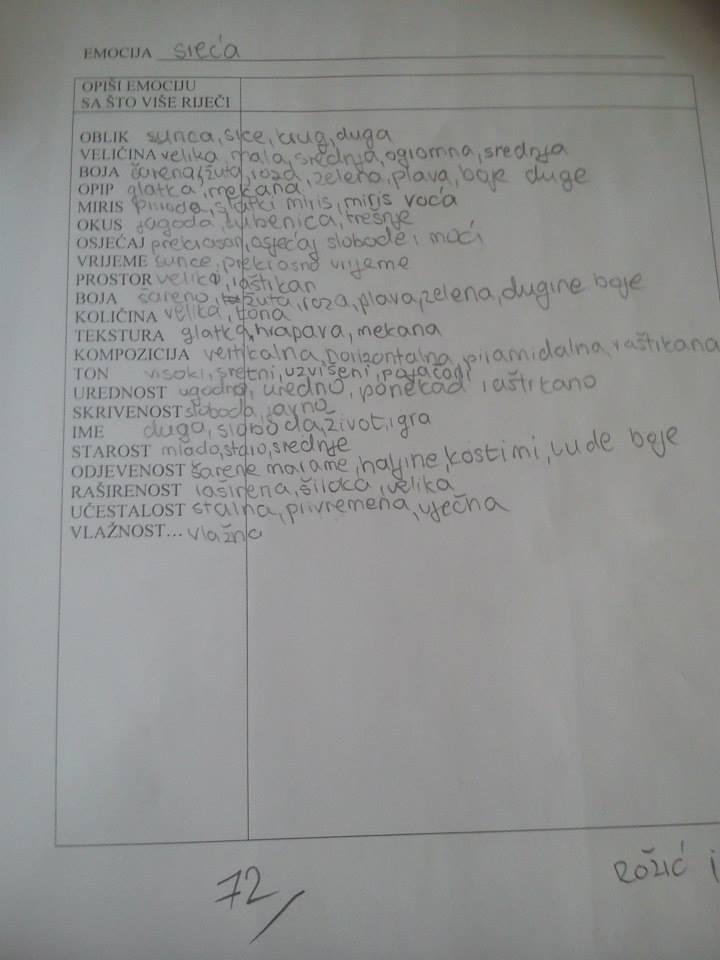 EMOCIJA sreća
OPIŠI EMOCIJU
SA ŠTO VIŠE RIJEČI
OBLIK sunca, srce, krug, duga
VELIČINA velika, mala, srednja, ogromna, srednja
BOJA šarena, žuta, roza, zelena, plava, boje duge
OPIP glatka, mekana
MIRIS prirode, slatki miris, miris voća
OKUS jagoda, lubenica, trešnje
OSJEĆAJ prekrasan, osjećaj slobode i moći
VRIJEME sunce, prekrasno vrijeme
PROSTOR veliki, raštrkan
BOJA šareno, žuta, roza, plava, zelena, dugine boje
KOLIČINA velika, tona
TEKSTURA glatka, hrapava, mekana
KOMPOZICIJA vertikalna, horizontalna, piramidalna, raštrkana
TON visoki, sretni, uzvišeni,
UREDNOST ugodno, uredno, ponekad raštrkano
SKRIVENOST sloboda, javno
IME duga, sloboda, život, igra
STAROST mlado, staro, srednje
ODJEVENOST šarene marame, haljine, kostimi, lude boje
RAŠIRENOST raširena, široka, velika
UČESTALOST stalna, privremena, vječna
VLAŽNOST... vlažno
72/
ROŽIĆ i